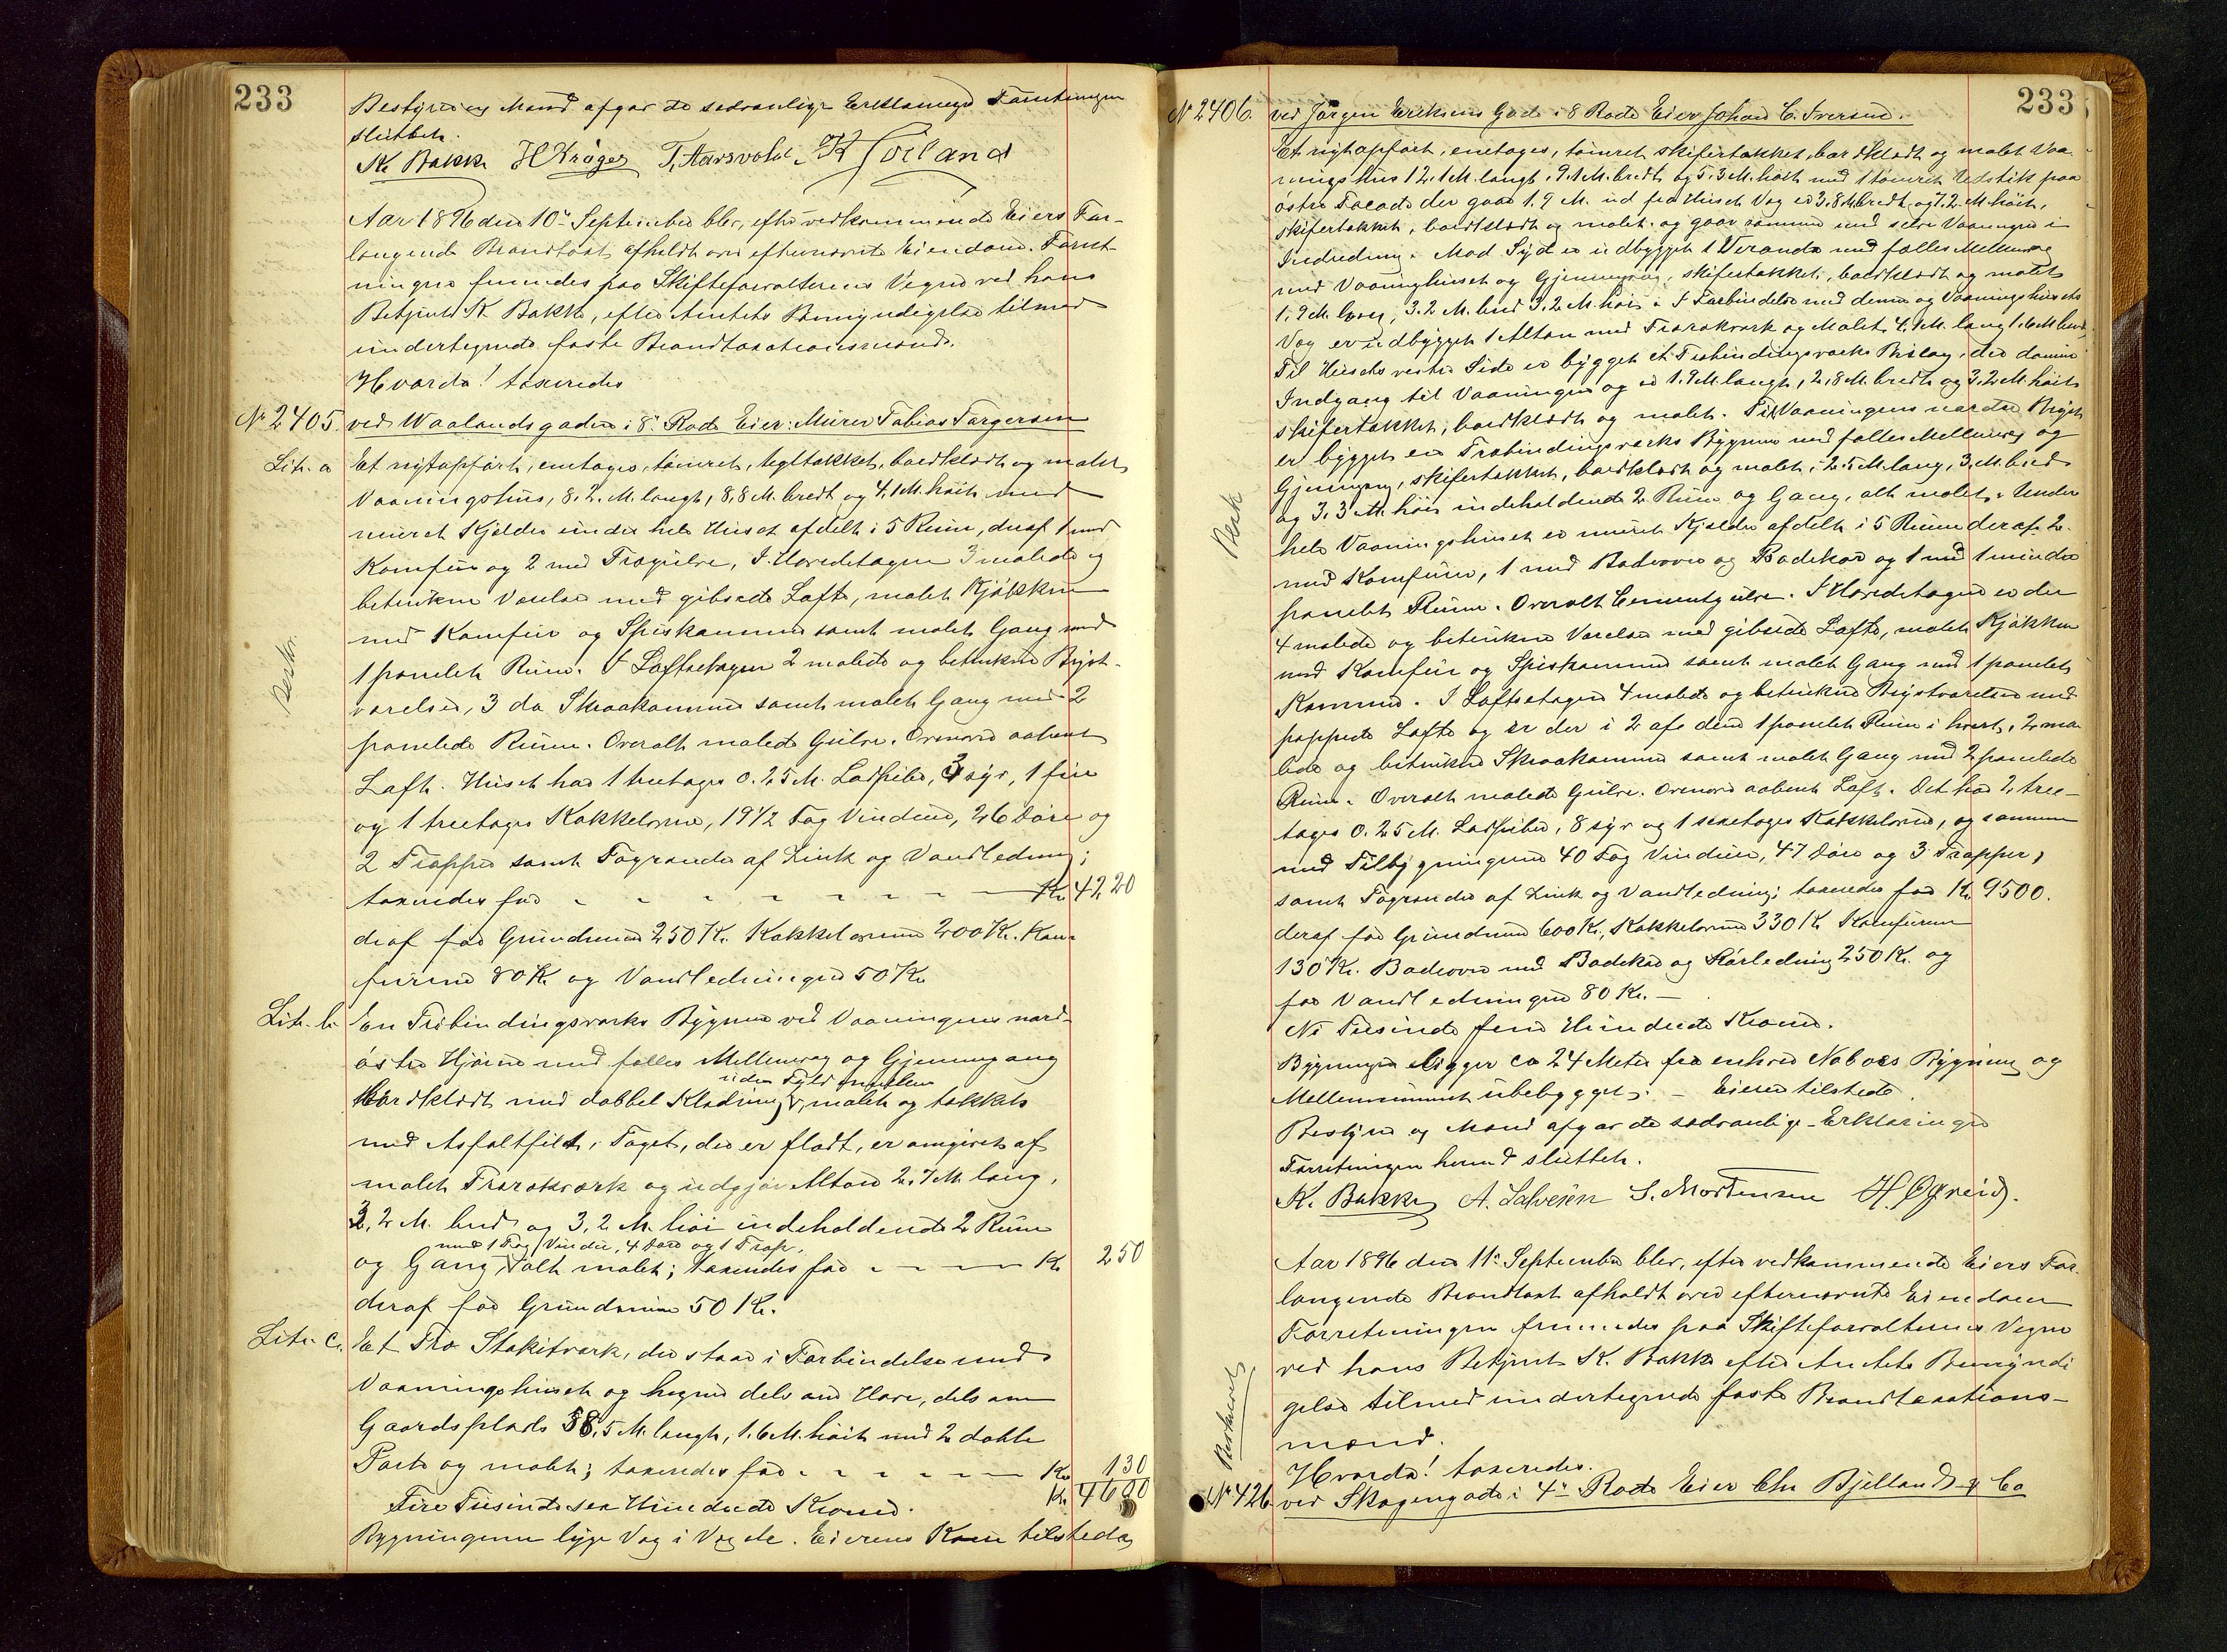 233
Bestyrer og Mand afgav de sedvanlige Erklæringer Forretningen
sluttet.
K. Bakke H Krøger T. Aarsvold K Høiland
Aar 1896 den 10de September blev, efter vedkommende Eiers For-
langende Brandtaxt afholdt over efternævnte Eiendom. Forret-
ningen fremmedes paa Skifteforvalterens Vegne ved hans
Betjent K. Bakke, efter Amtets Bemyndigelse tilmed
undertegnede faste Brandtaxationsmænd.
Hvorda! taxeredes
No 2405. ved Waalandsgaden i 8de Rode Eier: Murer Tobias Torgersen
Litr. a Et nyt opført, enetages, tømret, tegltækket, bordklædt og malet
Vaaningshus, 8,2 M. langt, 8,8 M. bredt og 4,1 M. høit med
muret Kjelder under hele Huset afdelt i 5 Rum, deraf 1 med
Komfur og 2 med Trægulve, I Hovedetagen 3 malede og
betrukne Værelser med gibsede Lofte, malet Kjøkken
med Komfur og Spiskammer samt malet Gang med
1 panelet Rum. I Loftsetagen 2 malede og betrukne Bryst-
værelser, 3 do Skraakammer samt malet Gang med 2
panelede Rum. Overalt malede Gulve. Ovenover aabent
Loft. Huset har 1 treetages 0.25 M. Lodpibe, 3 syv, 1 fire
og 1 treetages Kakkelovne, 19 1/2 Fag Vinduer, 26 Døre og
2 Trapper samt Tagrender af Zink og Vandledning;
taxeredes for - - - - - - - Kr 4220
deraf for Grundmur 250 Kr. Kakkelovnene 200 Kr. Kom-
furene 80 Kr og Vandledningen 50 Kr
Litr. b. En Trbindingsværks Bygning ved Vaaningens nord-
østre Hjørne med fælles Mellemvæg og Gjennemgang
uden Fyld imellem
bordklædt med dobbel Klædning, malet og tækket
med Asfaltfilt. Taget, der er fladt, er omgivet af
malet Trærækværk og udgjør Altan 2.7 M. lang,
3,2 M. bred og 3,2 M. høi indeholdende 2 Rum
med 1 Fag Vindu, 4 Døre og 1 Trap,
og Gang, alt malet; taxeredes for - - - - Kr 250
deraf for Grundmur 50 Kr.
Litr. c. Et Træ Stakitværk, der staar i Forbindelse med
Vaaningshuset og hegner dels om Have, dels om
Gaardsplads 58,5 M. langt, 1.6 M. høit med 2 doble
Porte og malet; taxeredes for - - - - - Kr 130
Fire Tusinde sex Hundrede Kroner. Kr 4600
Bygningerne ligge Væg i Væg de. Eierens Kone tilstede
Beskr.
233
No 2406. ved Jørgen Eriksens Gade i 8 Rode Eier Johan C. Iversen.
Et nyt opført, enetages, tømret skifertækket, bordklædt og malet Vaa-
ningshus 12.1 M. langt, 9.1 M. bredt og 5,3 M. høit med 1 tømret Udstik paa
østre Facade der gaar 1.9 M. ud fra Husets Væg er 3,8 M. bredt og 7.2 M. høit,
skifertækket, bordklædt og malet og gaar sammen med selve Vaaningen i
Indredning. Mod Syd er udbygget 1 Veranda med fælles Mellemvæg
med Vaaninghuset og Gjennemgang, skifertækket, bordklædt og malet
1.9 M. lang, 3.2 M. bred 3,2 M. høi. I Forbindelse med denne og Vaaningshusets
Væg er udbygget 1 Altan med Trærækværk og Malet, 4.1 M. lang 1.6 M bred,
Til Husets vestre Side er bygget et Trebindingsværks Bislag, der danner
Indgang til Vaaningen og er 1.9 M. langt, 2,8 M. bredt og 3,2 M. høit
skifertækket, bordklædt og malet. Til Vaaningens nordre Bryst
er bygget en Træbindingsværks Bygning med fælles Mellemvæg og
Gjennemgang, skifertækket, bordklædt og malet, 2.5 M. lang, 3. M. bred
og 3,3 M. høi indeholdende 2 Rum og Gang, alt malet. Under
hele Vaaningshuset er muret Kjælder afdelt i 5 Rum deraf 2
med Komfurer, 1 med Badeovn og Badekar og 1 med 1 mindre
panelet Rum. Overalt Cementgulve. I Hovedetagen er der
4 malede og betrukne Værelser med gibsede Lofte, malet Kjøkken
med Komfur og Spiskammer samt malet Gang med 1 panelet
Kammer. I Loftsetagen 4 malede og betrukne Brystværelser med
pappede Lofte og er der i 2 af dem 1 panelet Rum i hvert, 2 ma-
lede og betrukne Skraakammer samt malet Gang med 2 panelede
Rum. Overalt malede Gulve. Ovenover aabent Loft. Det har 2 tree-
tages 0.25 M. Lodpiber, 8 syv og 1 sexetages Kakkelovne, og sammen
med Tilbygningerne 40 Fag Vinduer, 47 Døre og 3 Trapper,
samt Tagrender af Zink og Vandledning; taxeredes for Kr. 9500.
deraf for Grundmur 600 Kr., Kakkelovne 330 Kr Komfurene
130 Kr. Badeovn med Badekar og Rørledning 250 Kr. og
for Vandledningen 80 Kr. -
Ni Tusinde fem Hundrede Kroner.
Bygningen ligger ca 24 Meter fra enhver Naboes Bygning og
Mellemrummet ubebygget. - Eieren tilstede.
Bestyrer og Mænd afgav de sædvanlige Erklæringer
Forretningen hermed sluttet.
K. Bakke A. Salvesen S. Mortensen H. Øgreid.
Aar 1896 den 11te September blev, efter vedkommende Eiers For-
langende Brandtaxt afholdt over efternævnte Eiendom
Forretningen fremmedes paa Skifteforvalterens Vegne
ved hans Betjent K. Bakke efter Amtets Bemyndi-
gelse tilmed undertegnede faste Brandtaxations-
mænd.
Hvorda! taxeredes.
No 426 ved Skagengade i 4de Rode Eier Chr Bjelland & Co
Besk